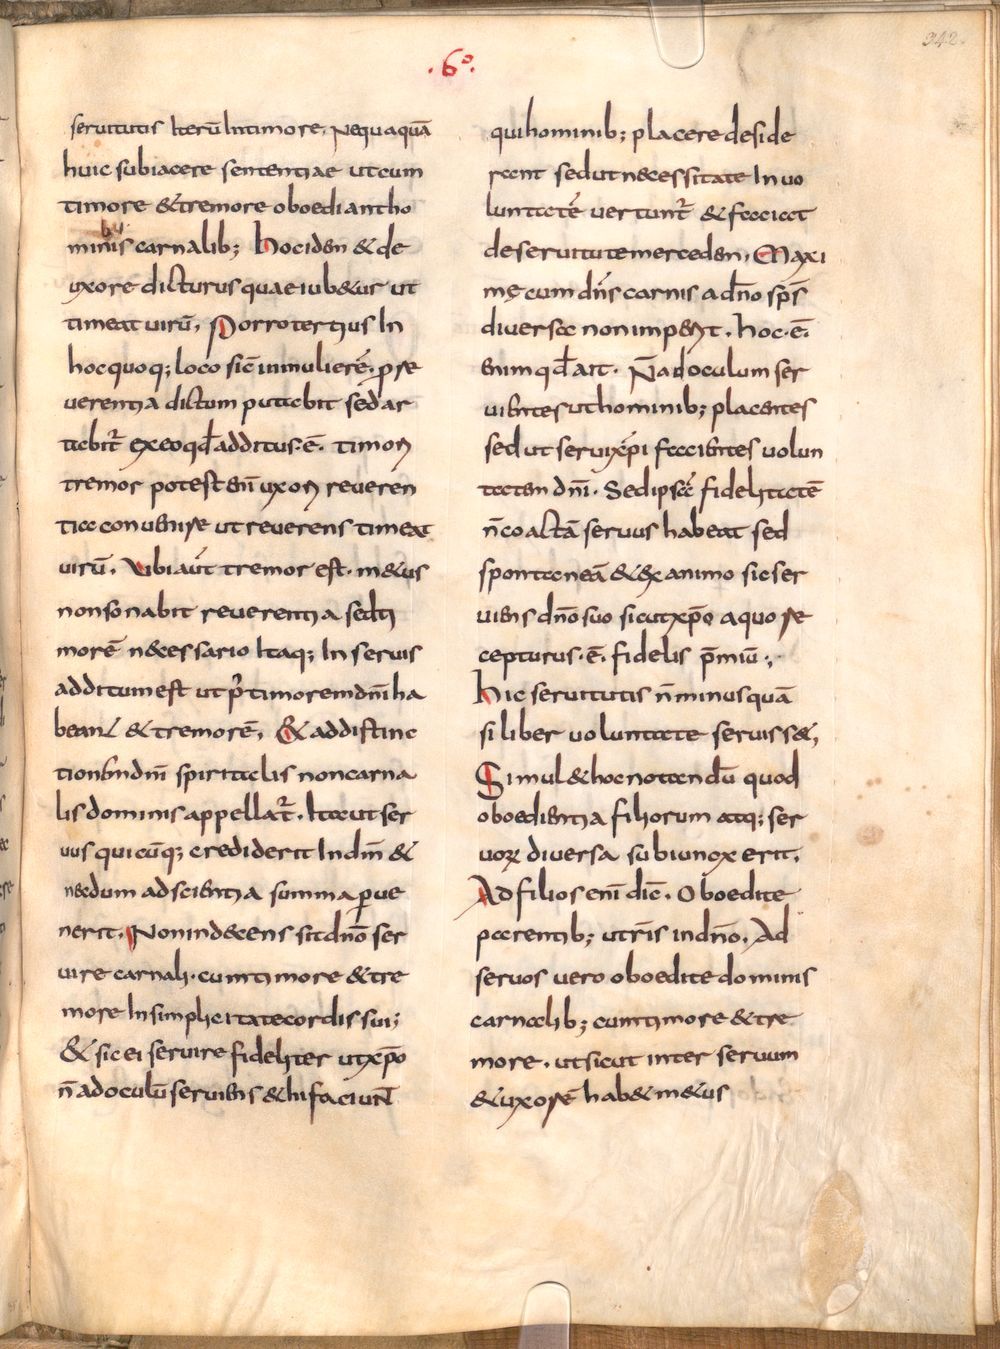 342.
.6º.
seruitutis Iterū Intimore, Nequaquā
huic subiacere sententiae utcum
timore &tremore oboediantho
minibus carnalib; hocidem &de
uxore dicturus quae iub&ur ut
timeat uirū, Porrotertius In
hocquoq; loco sic̄ inmulieré. p se
uerentia dictum putabit sedar
tabit̄ exeoqd̄ additus.ē. timor
tremor potest eni uxori reueren
tiae conuenire ut reuerens timeat
uirū. Vbiaut tremor est. m&us
nonsonabit reuerentia sedti
morē n&essario Itaq; In seruis
additumest ut p̄ timoremdn̄i ha
beant &tremorē, & addistinc
tionemdn̄i spiritalis noncarna
lis dominis appellat̄. Itaeut ser
uus quicūq; crediderit Indn̄i &
necdum adscientia summa perue
nerit. Nonind&cens sitdn̄o ser
uire carnali. cumtimore &tre
more Insimplicitatecordis sui;
& sic ei seruire fideliter utxp̄o
n̄adoculū seruiens &hi faciunt
quihominib; placere deside
rant sedutn&cessitate Inuo
luntaté uertunt̄ &faciat
deseruitutemerceden, Maxi
mę cum dn̄s carnis adn̄o sp̄s
diuersa nonimperat. hoc.ē.
enim qd̄ ait. N̄adoculum ser
uientes uthominib; placentes
sed ut seruixp̄i facientes uolun
taten dn̄i. Sedipsá fidelitatē
n̄coactā seruus habeat sed
spontaneā &ex animo sicser
uiens dn̄osuo sicutxp̄o aquo re
cepturus.ē. fidelis p̄miū;,
hic seruitutis n̄minusquā
si liber uoluntate seruiss&,
Simul&hocnotandū quod
oboedientia filiorum atq; ser
uorꝝ diuersa subiunox erit.
Ad filios eni dic̄. Oboedite
parentib; utris̄ indn̄o. Ad
seruos uero oboedite dominis
carnalib; cumtimore &tre
more. utsicut inter seruum
&uxorē hab& m&us